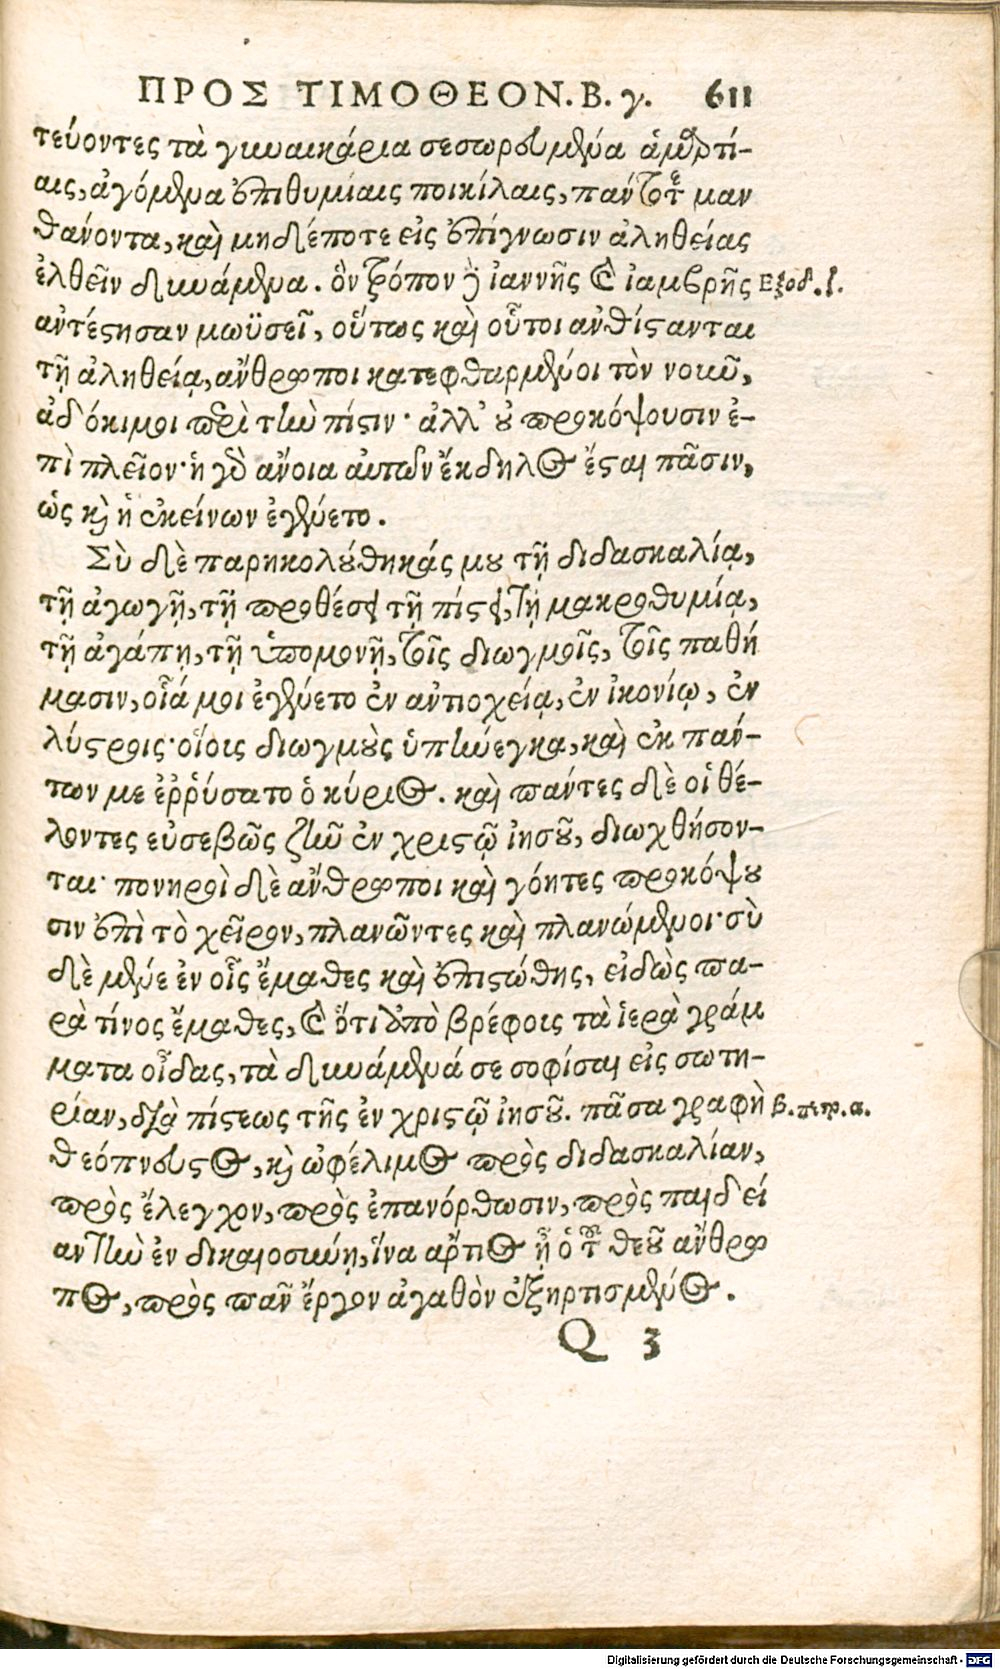 ΠΡΟΣ ΤΙΜΟΘΕΟΝ. Β. γ. 611
τεύοντες τὰ γυναικάρια σεσωρευμένα ἁμαρτί-
αις, ἀγόμενα ἐπιθυμίαις ποικίλαις, πάντοτε μαν
θάνοντα, καὶ μηδέποτε εἰς ἐπίγνωσιν ἀληθείας
ἐλθεῖν δυνάμενα. ὃν τρόπον δὲ ἰαννῆς καὶ ἰαμβρῆς Εξοδ. ζ.
ἀντέστησαν μωϋσεῖ, οὕτως καὶ οὗτοι ἀνθίστανται
τῇ ἀληθείᾳ, ἄνθρωποι κατεφθαρμένοι τὸν νοῦν,
ἀδόκιμοι περὶ τὴν πίστιν· ἀλλ' οὐ προκόψουσιν ἐ-
πὶ πλεῖον· ἡ γὰρ ἄνοια αὐτῶν ἔκδηλος ἔσται πᾶσιν,
ὡς καὶ ἡ ἐκείνων ἐγένετο.
Σὺ δὲ παρηκολούθηκάς μου τῇ διδασκαλίᾳ,
τῇ ἀγωγῇ, τῇ προθέσει τῇ πίστει, τῇ μακροθυμίᾳ,
τῇ ἀγάπῃ, τῇ ὑπομονῇ, τοῖς διωγμοῖς, τοῖς παθή
μασιν, οἷά μοι ἐγένετο ἐν ἀντιοχείᾳ, ἐν ἰκονίῳ, ἐν
λύστροις· οἵοις διωγμοὺς ὑπήνεγκα, καὶ ἐκ πάν-
των με ἐῤῥύσατο ὁ κύριος. καὶ πάντες δὲ οἱ θέ-
λοντες εὐσεβῶς ζῆν ἐν χριστῷ ἰησοῦ, διωχθήσον-
ται· πονηροὶ δὲ ἄνθρωποι καὶ γόητες προκόψου
σιν ἐπὶ τὸ χεῖρον, πλανῶντες καὶ πλανώμενοι· σὺ
δὲ μένε ἐν οἷς ἔμαθες καὶ ἐπιστώθης, εἰδὼς πα-
ρὰ τίνος ἔμαθες, καὶ ὅτι ἀπὸ βρέφοις τὰ ἱερὰ γράμ
ματα οἶδας, τὰ δυνάμενά σε σοφίσαι εἰς σωτη-
ρίαν, διὰ πίστεως τῆς ἐν χριστῷ ἰησοῦ. πᾶσα γραφὴ β. πετρ. α.
θεόπνευστος, καὶ ὠφέλιμος πρὸς διδασκαλίαν,
πρὸς ἔλεγχον, πρὸς ἐπανόρθωσιν, πρὸς παιδεί
αν τὴν ἐν δικαιοσύνῃ, ἵνα ἄρτιος ᾖ ὁ τοῦ θεοῦ ἄνθρω
πος, πρὸς πᾶν ἔργον ἀγαθὸν ἐξηρτισμένος.
Q 3
Digitalisierung gefördert durch die Deutsche Forschungsgemeinschaft - DFG